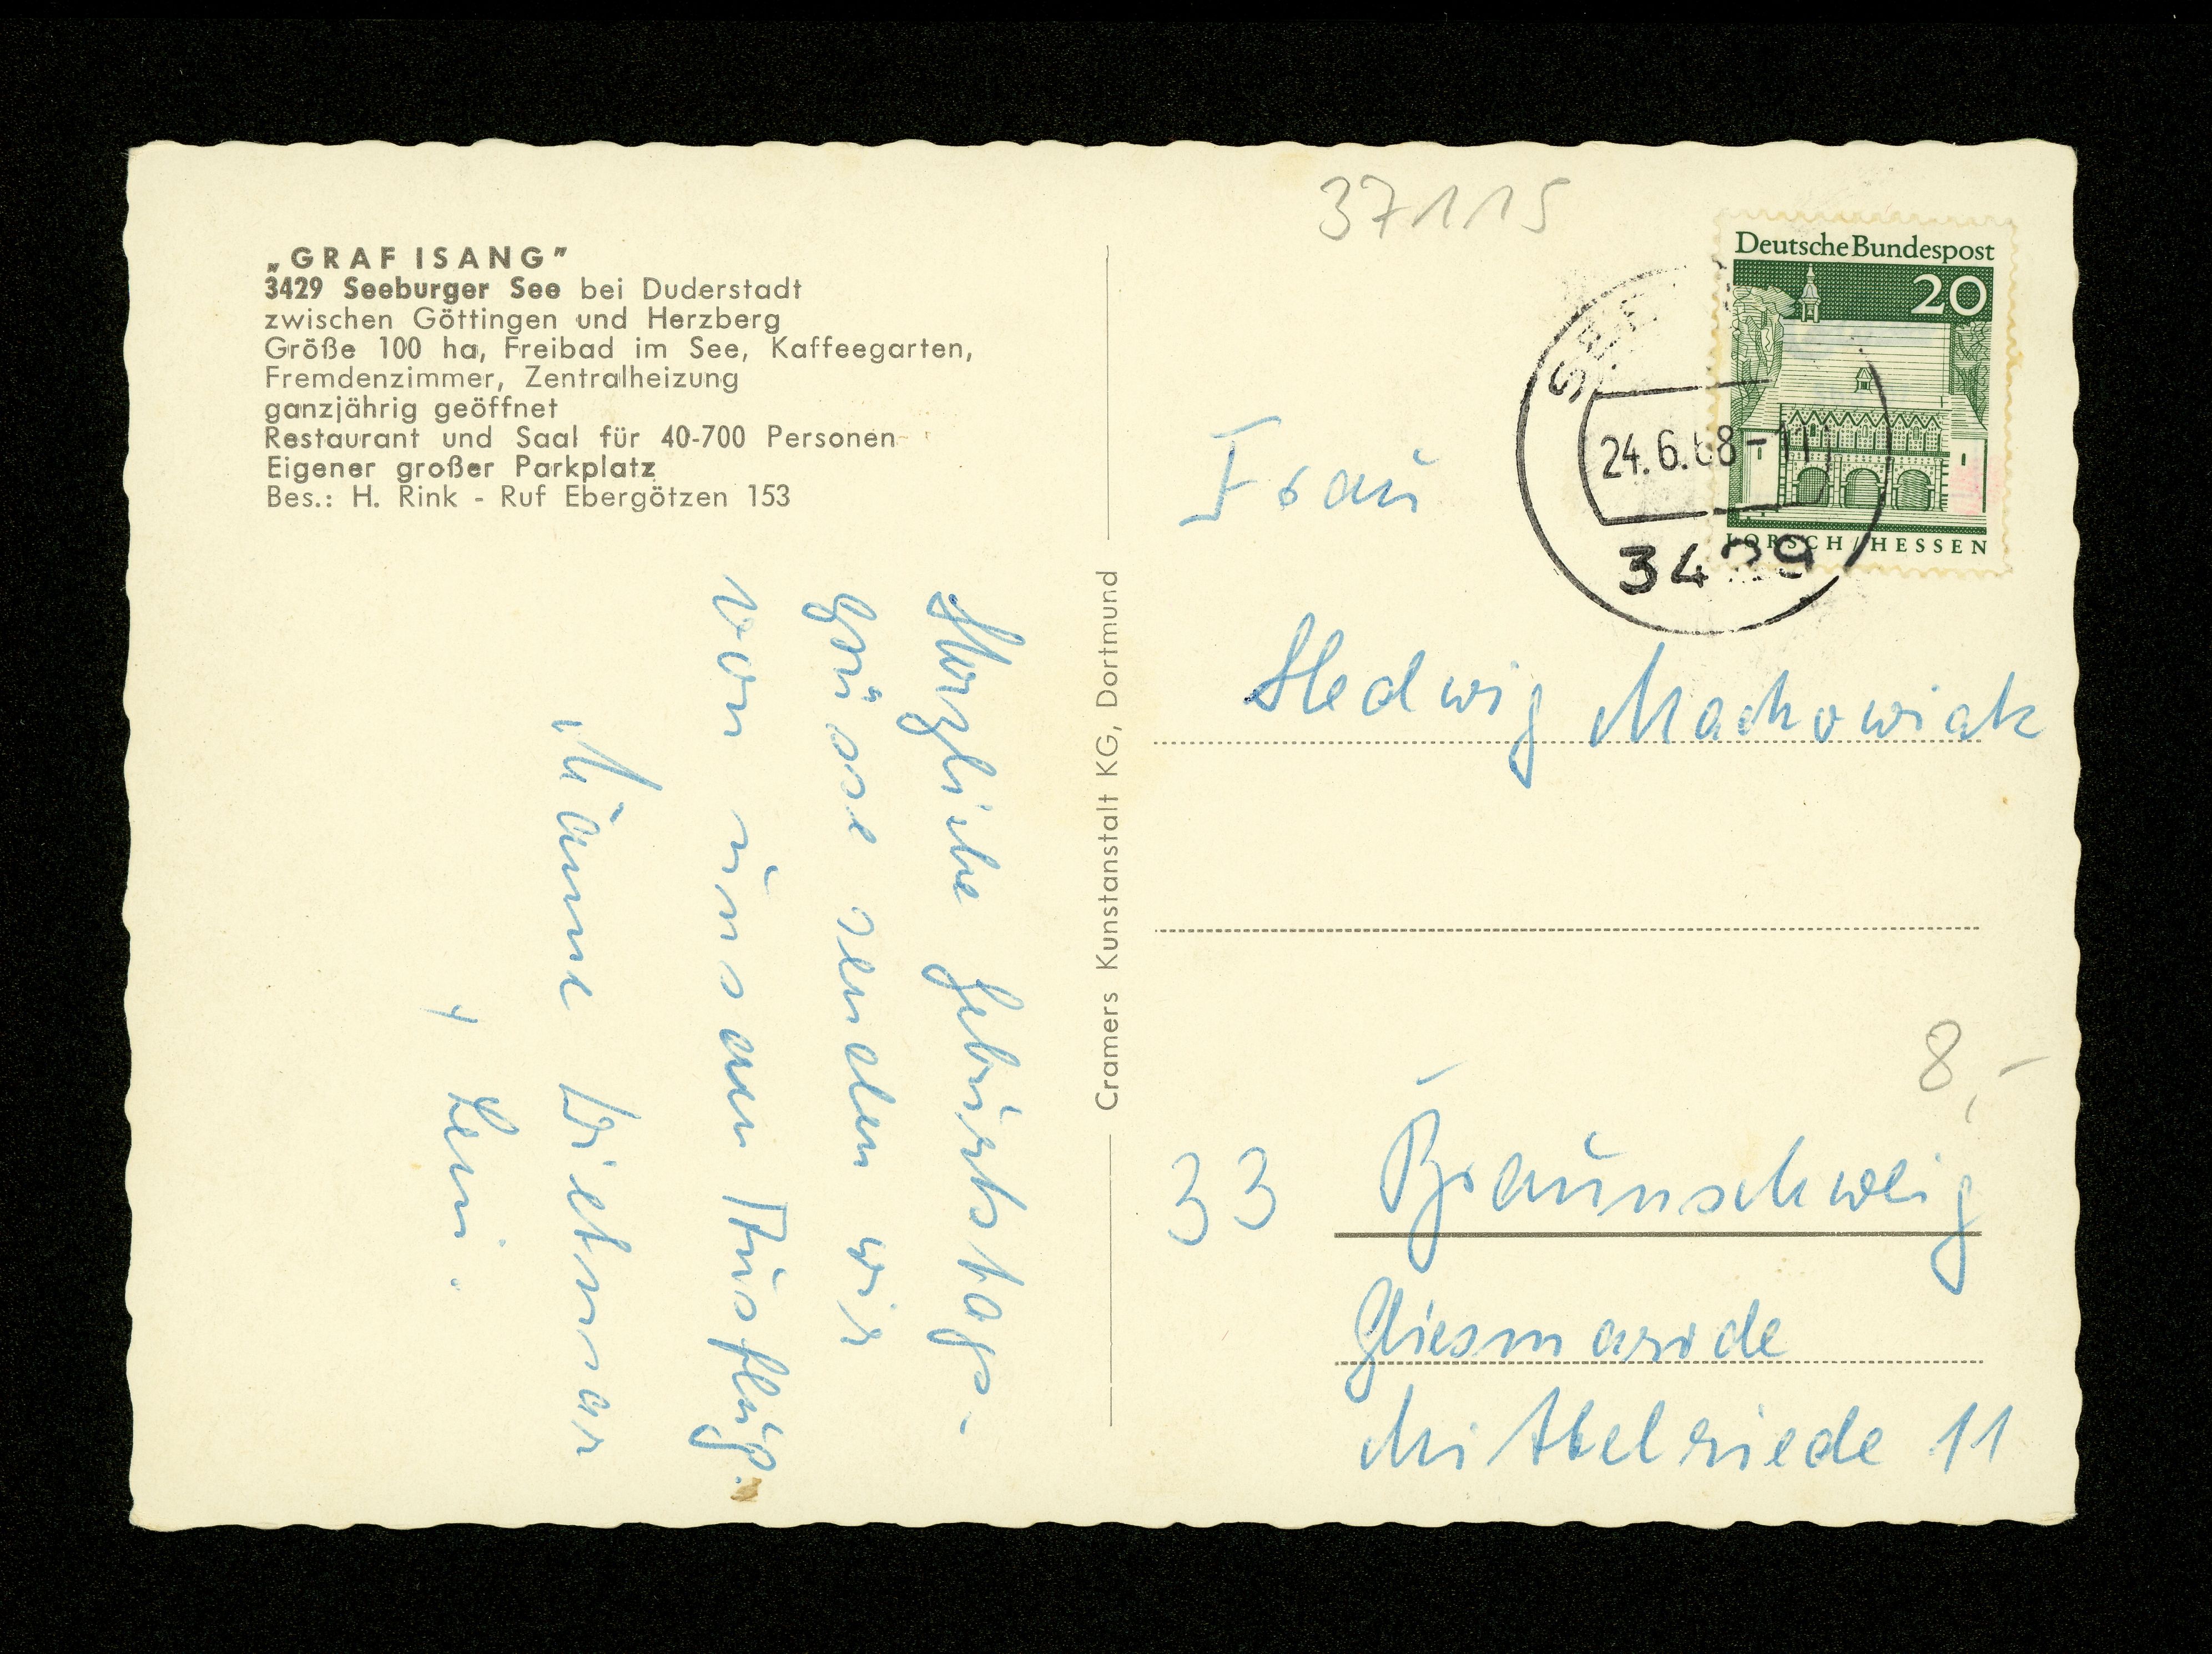 „GRAF ISANG”
3429 Seeburger See bei Duderstadt
zwischen Göttingen und Herzberg
Größe 100 ha, Freibad im See, Kaffeegarten,
Fremdenzimmer, Zentralheizung
ganzjährig geöffnet
Restaurant und Saal für 40-700 Personen
Eigener großer Parkplatz
Bes.: H. Rink - Ruf Ebergötzen 153
Herzliche Geburtstags-
grüsse senden wir
von unserm Ausflug.
Marianne Dietmar
+ Leni.
Cramers Kunstanstalt KG, Dortmund
37115
Deutsche Bundespost
20
LORSCH/HESSEN
24.6.68
3429
Frau
Hedwig Machowiak
8,-
33 Braunschweig
Gliesmarode
Mittelriede 11